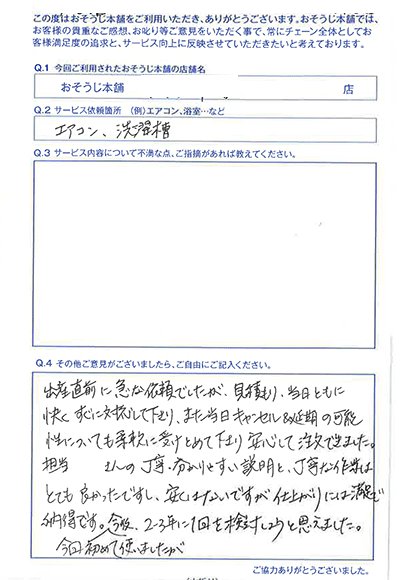 この度はおそうじ本舗をご利用いただき、ありがとうございます。おそうじ本舗では、
お客様の貴重なご感想、お叱り等ご意見をいただく事で、常にチェーン全体としてお
客様満足度の追求と、サービス向上に反映させていただきたいと考えております。
Q.1 今回ご利用されたおそうじ本舗の店舗名
おそうじ本舗 店
Q.2 サービス依頼箇所 (例)エアコン、浴室…など
エアコン、洗濯槽
Q.3 サービス内容について不満な点、ご指摘があれば教えてください。
Q.4 その他ご意見がございましたら、ご自由にご記入ください。
出産直前に急な依頼でしたが、見積もり、当日ともに
快くすぐに対応して下さり、また当日キャンセル&延期の可能
性についても柔軟に受けとめて下さり安心して注文できました。
担当 さんの丁寧・分かりやすい説明と、丁寧な作業は
とても良かったですし、安くはないですが仕上がりには満足で
納得です。今後、2-3年に1回を検討しようと思えました。
今回初めて使いましたが
ご協力ありがとうございました。